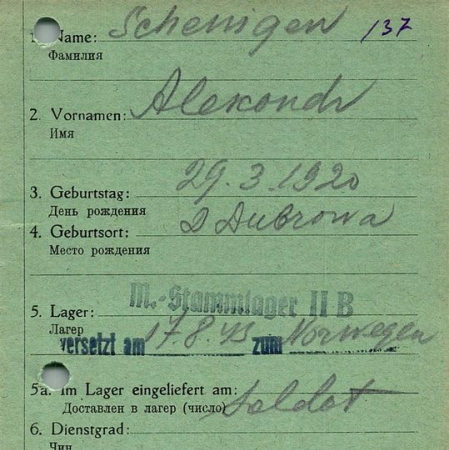 1. Name: Schenigen 137
Фамилия
2. Vornamen: Alexandr
Имя
29.3.1920
3. Geburtstag:
День рождения
D Dubrowa
4. Geburtsort:
Место рождения
M.-Stammlager II B
5. Lager:
Лагерь
versetzt am 17.8.43 zum Norwegen
5a. Im Lager eingeliefert am:
Доставлен в лагер (число) Soldat
6. Dienstgrad:
Чин